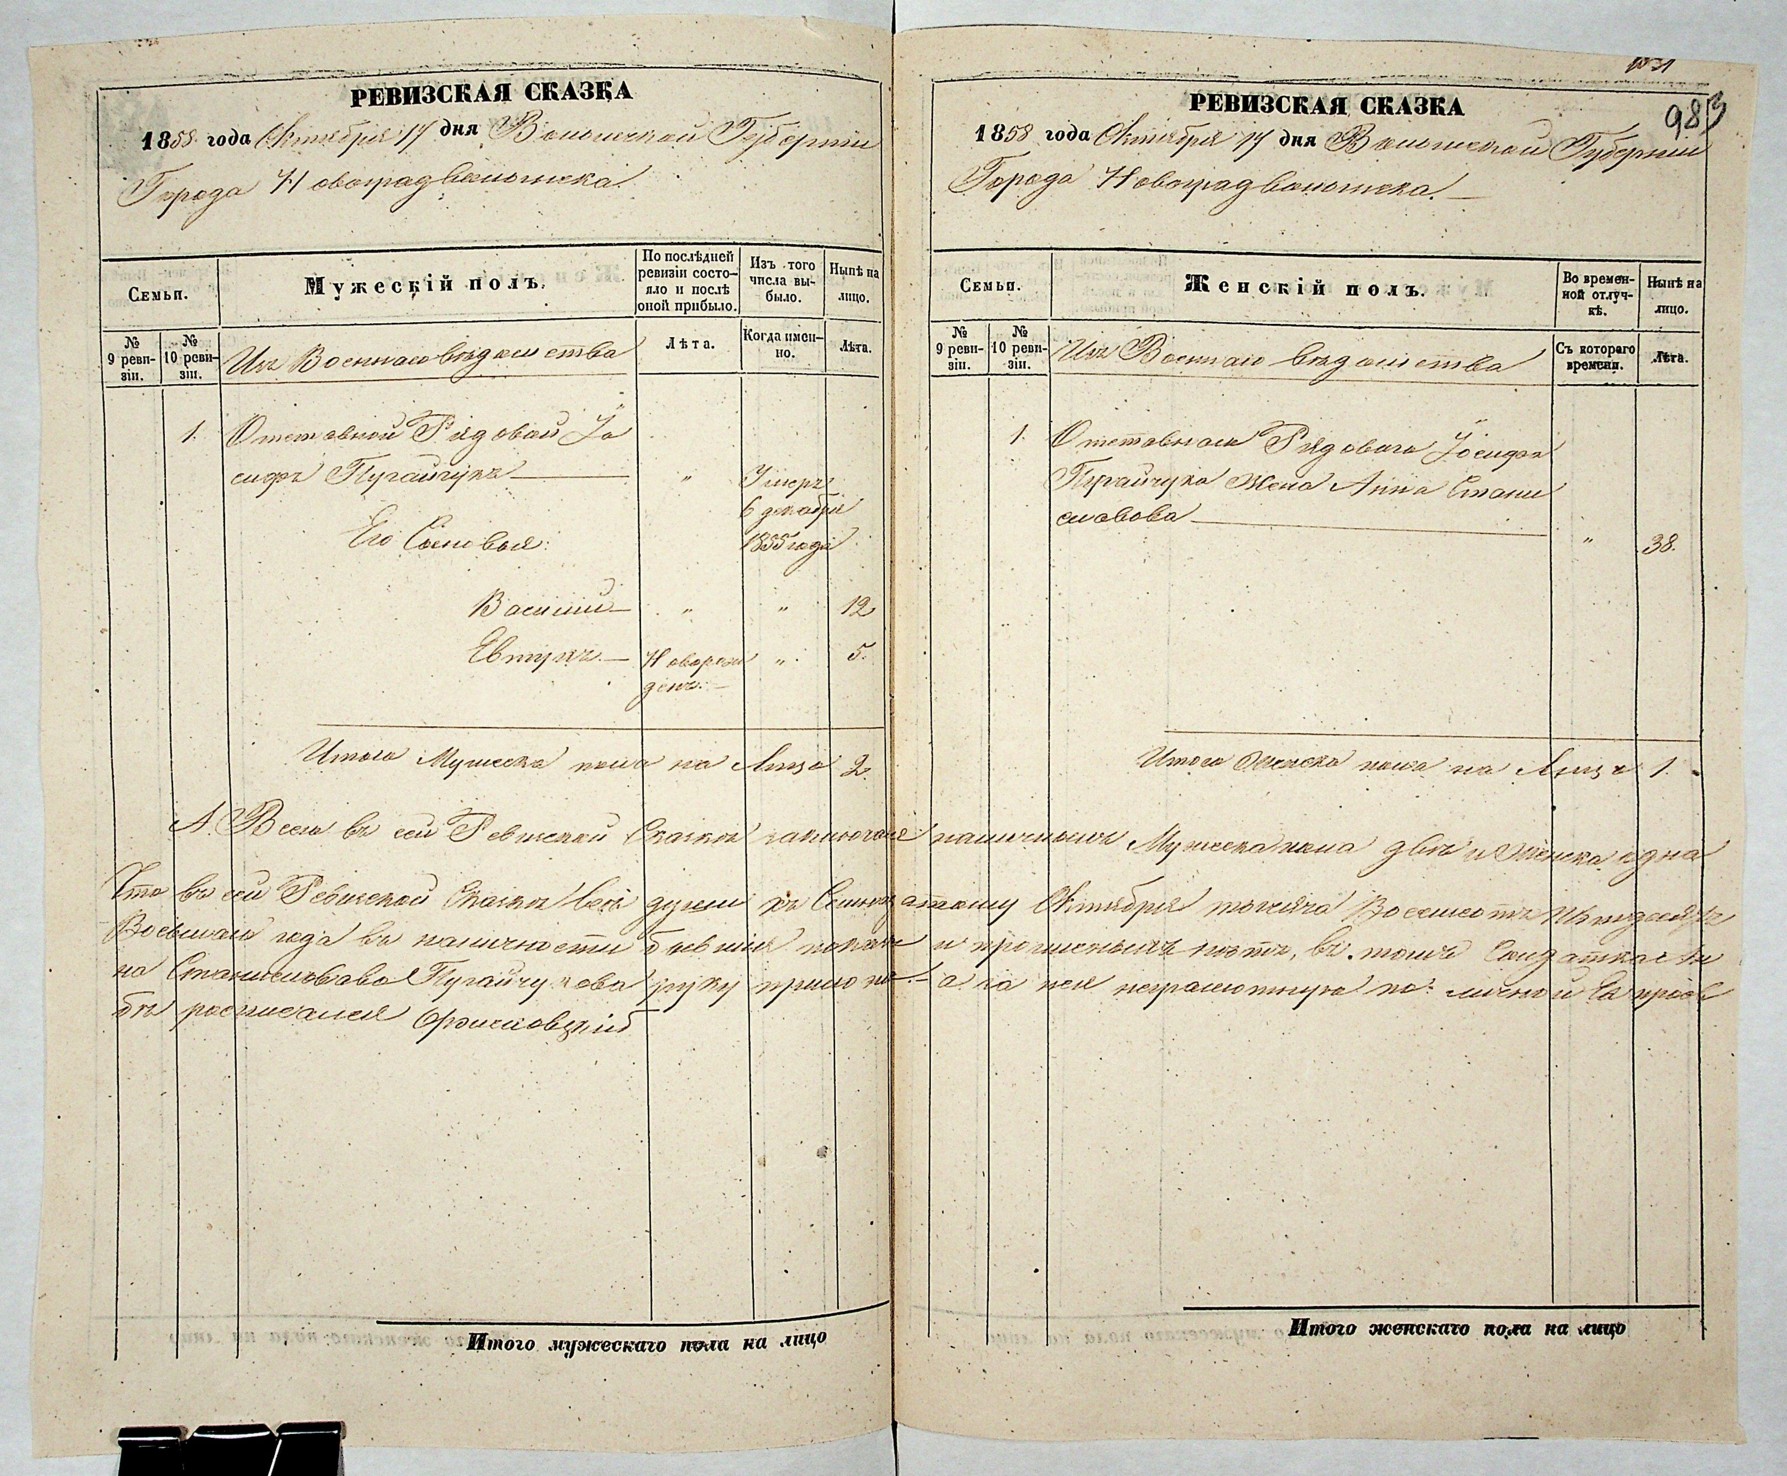 РЕВИЗСКАЯ СКАЗКА
1858 года Октября 17 дня Волынской Губернии
Города Новоградволынска
Семьи.
Мужескій полъ.
По послѣдней ревизіи состояло и послѣ оной прибыло.
Изъ того числа выбыло.
Нынѣ на лицо.
№ 9 ревизіи.
№ 10 ревизіи.
Изъ Военнаго вѣдомства
Лѣта.
Когда именно.
Лѣта.
1. Отставной Рядовой Іо
сифъ Пугайчукъ — " Умеръ
6 декабря
Его Сыновья: 1855 года
Василий — " " 12
Евтухъ — Новорож " 5.
денъ. —
Итого Мужеска пола на Лицо 2
Итого мужескаго пола на лицо
1031
983
РЕВИЗСКАЯ СКАЗКА
1858 года Октября 17 дня Волынской Губернии
Города Новоградволынска. —
Семьи.
Женскій полъ.
Во временной отлучкѣ.
Нынѣ на лицо.
№ 9 ревизіи.
№ 10 ревизіи.
Изъ Военнаго вѣдомства
Съ котораго времени.
Лѣта.
1. Отставнаго Рядоваго Іосифа
Пугайчука Жена Анна Стани
славова — " 38.
Итого Женска пола на Лицо 1.
А Всего въ сей Ревизской Сказкѣ наличныхъ Мужеска пола двѣ и Женска одна
Что въ сей Ревизской Сказкѣ всѣ души къ Семнадцатому Октября тысяча Восемсотъ Пятдесятъ
Восьмаго года въ наличности бывшія показаны и прописныхъ нѣтъ, въ томъ Солдатка Ан
на Станиславова Пугайчукова руку приложила а за нея неграмотную по личной Ея прозь
бѣ росписался
Итого женскаго пола на лицо